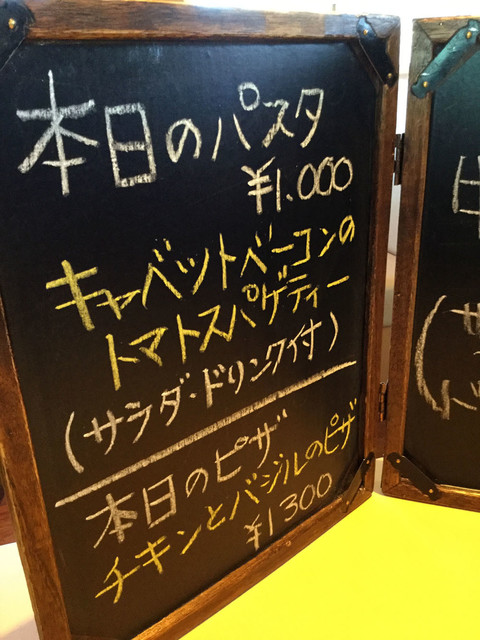 本日のパスタ
¥1.000
キャベットベーコンの
トマトスパゲティー
(サラダ・ドリンク付)
本日のピザ
チキンとバジルのピザ
¥1300